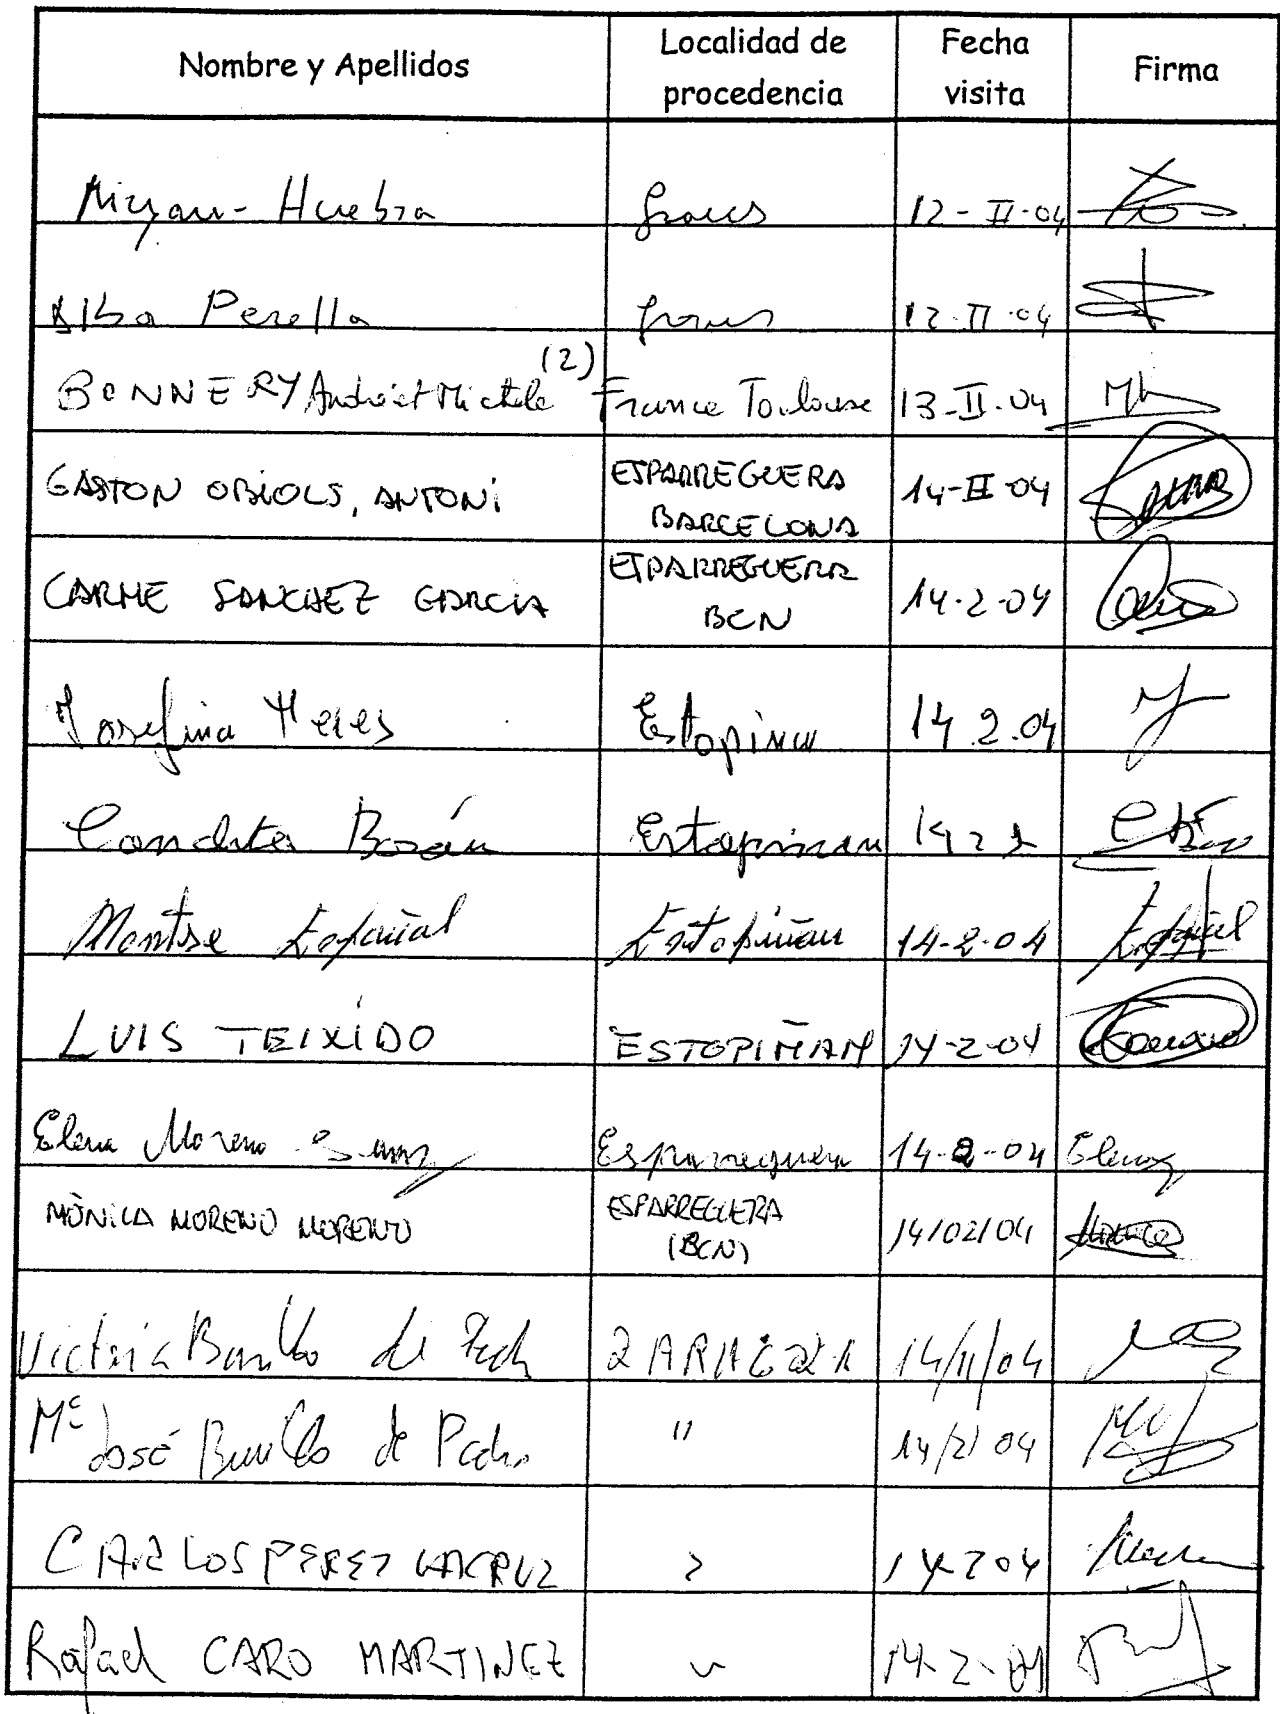 Nombre y Apellidos Localidad de procedencia Fecha visita Firma
Miryan - Huebra Graus 12-II-04
Alba Perella Graus 12-II-04
BONNERY André et Michele (2) France Toulouse 13-II-04
GASTON OBIOLS, ANTONI ESPARREGUERA BARCELONA 14-II-04
CARME SANCHEZ GARCIA ESPARREGUERA BCN 14-2-04
Josefina Estopiñan 14 2.04
Conchita Bozán Estopiñan 14 2
Montse Español Estopiñan 14-2-04 Español
LUIS TEIXIDO ESTOPIÑAN 14-2-04
Elena Moreno Esparreguera 14-2-04 Elena
MÒNICA MORENO MORENO ESPARREGUERA (BCN) 14/02/04
Victoria Burillo de Pedro ZARAGOZA 14/II/04
Mª José Burillo de Pedro " 14/2/04
CARLOS PEREZ LACRUZ 14-2 04
Rafael CARO MARTINEZ 14-2-04